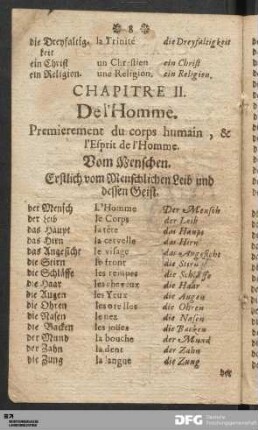 8
die Dreyfaltig- la Trinité die Dreyfaltigkeit
keit
ein Christ un Chrestien ein Christ
ein Religion. une Religion. ein Religion.
CHAPITRE II.
De l'Homme.
Premierement du corps humain, &
l'Esprit de l'Homme.
Vom Menschen.
Erstlich vom Menschlichen Leib und
dessen Geist.
der Mensch L'Homme Der Mensch
der Leib le Corps der Leib
das Haupt la tête das Haupt
das Hirn la cervelle das Hirn
das Angesicht le visage das Angesicht
die Stirn le front die Stirn
die Schläffe les temples die Schläffe
die Haar les cheveux die Haar
die Augen les Yeux die Augen
die Ohren les oreilles die Ohren
die Nasen le nez die Nasen
die Backen les joües die Backen
der Mund la bouche der Mund
der Zahn la dent der Zahn
die Zung la langue die Zung
der
DFG Deutsche
Forschungsgemeinschaft